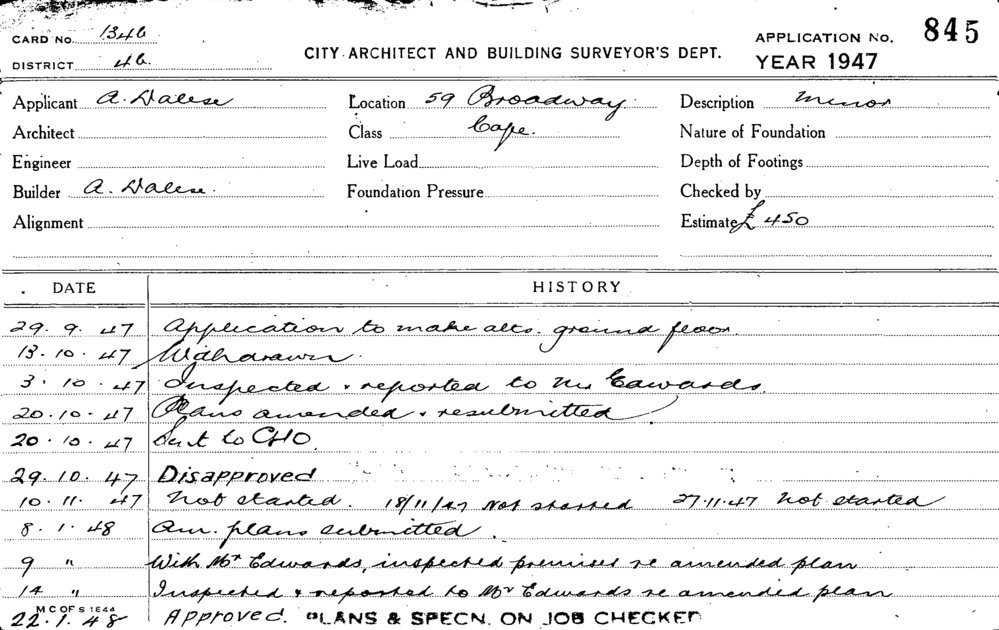 CARD No. 1346
DISTRICT 46.
CITY ARCHITECT AND BUILDING SURVEYOR'S DEPT.
APPLICATION No. 845
YEAR 1947
Applicant A. Dalese Location 59 Broadway Description Minor
Architect Class Cafe. Nature of Foundation
Engineer Live Load Depth of Footings
Builder A. Dalese. Foundation Pressure Checked by
Alignment Estimate £ 450
DATE HISTORY
29. 9. 47 Application to make alts. ground floor
13. 10. 47 Withdrawn.
3. 10. 47 Inspected & reported to Mr Edwards.
20. 10. 47 Plans amended & resubmitted
20. 10. 47 Sent to CHO.
29. 10. 47 Disapproved
10. 11. 47 Not started. 18/11/47 Not started 27.11.47 Not started
8. 1. 48 Am. plans submitted.
9 " With Mr Edwards, inspected premises re amended plan
14 " Inspected & reported to Mr Edwards re amended plan
M C OF S 1844
22. 1. 48 Approved. PLANS & SPECN. ON JOB CHECKED